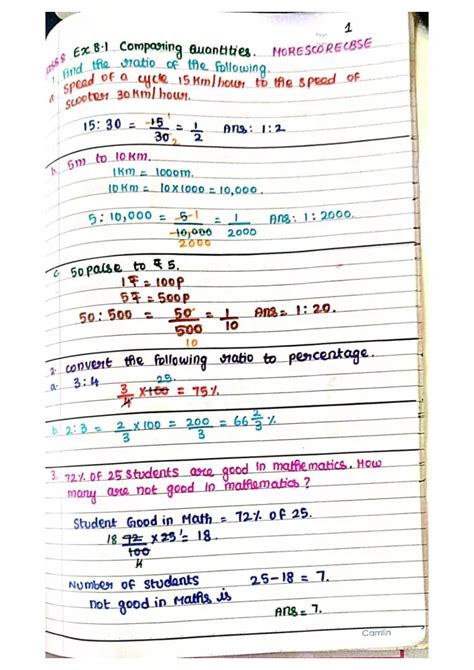 Page 1
Class 8 Ex 8.1 Comparing Quantities. MORESCORECBSE
1. Find the ratio of the following.
a. Speed of a cycle 15 Km/hour to the speed of
scooter 30 Km/hour.
15 : 30 = 15 1/30 2 = 1/2 Ans: 1:2
b. 5m to 10 Km.
1Km = 1000m.
10 Km = 10 x 1000 = 10,000.
5 : 10,000 = 5 1/10,000 2000 = 1/2000 Ans: 1 : 2000.
c. 50 paise to ₹ 5.
1₹ = 100p
5₹ = 500p
50 : 500 = 50/500 10 = 1/10 Ans = 1 : 20.
2. Convert the following ratio to percentage.
a. 3 : 4
3/4 x 100 25 = 75%
b. 2 : 3 = 2/3 x 100 = 200/3 = 66 2/3 %
3. 72% of 25 students are good in mathematics. How
many are not good in mathematics?
Student Good in Math = 72% of 25.
18 72/100 4 x 25 1 = 18.
Number of students 25-18 = 7.
not good in Maths is
Ans = 7.
Camlin